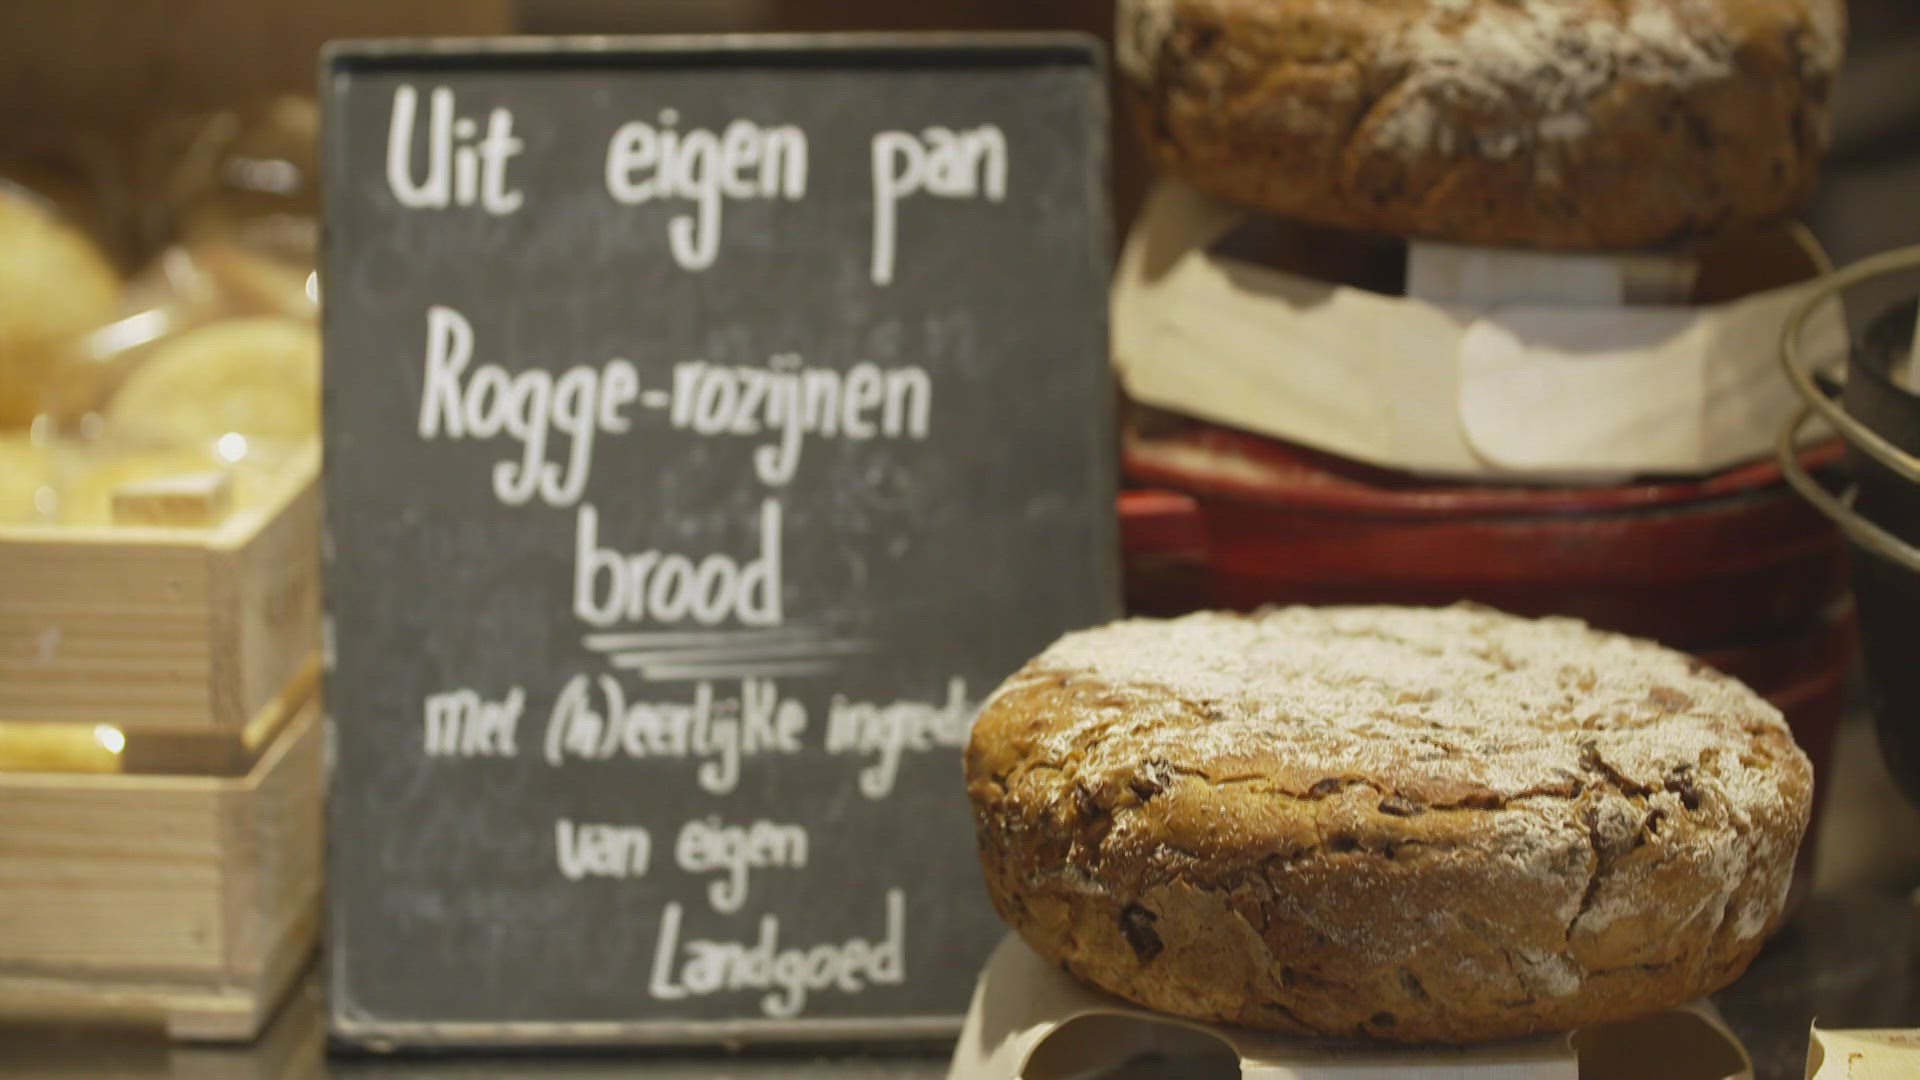 Uit eigen pan
Rogge-rozijnen
brood
met (h)eerlijke ingred
van eigen
Landgoed